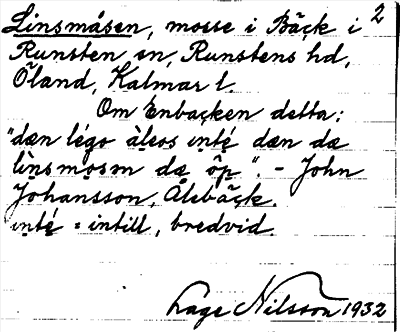 Linsmåsen, mosse i Bäck i 2
Runsten sn, Runstens hd,
Öland, Kalmar l.
Om Enbacken detta:
"dæn légo àleos ınté dæn dæ
lìnsmosın dæ ôp". – John
Johansson, Ålebäck.
ınté = intill, bredvid.
Lage Nilsson 1932